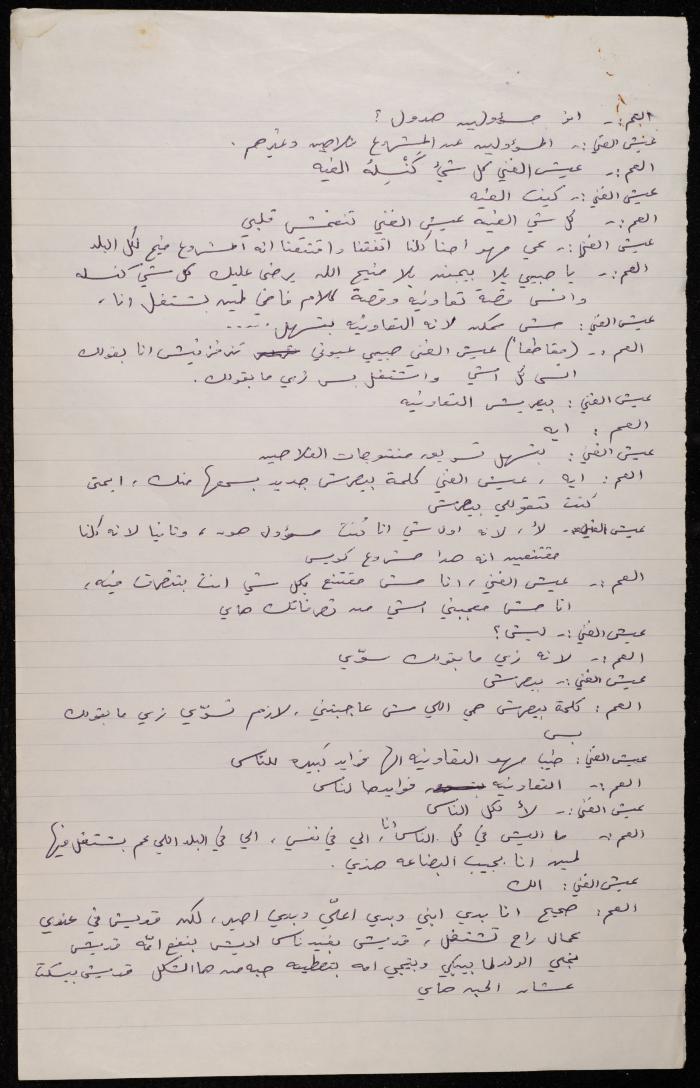 العم :- انو مسؤولين هدول ؟
عيش الغني :- المسؤولين عن المشروع فلاحين وغيرهم .
العم :- عيش الغني كل شيء كَنْسِلُه الغيه
عيش الغني :- كيف الغيه
العم :- كل شي الغيه عيش الغني تنغمش قلبي
عيش الغني :- عمي مهو احنا كلنا اتفقنا واقتنعنا انه المشروع منيح لكل البلد
العم :- يا حبيبي يلا بيجننه يلا منيح الله يرضى عليك كل شي كنسله
وانسى قصة تعاونيه وقصة كلام فاضي لمين بشتغل انا ،
عيش الغني : مش ممكن لانه التعاونيه بتسهل .....
العم :- (مقاطعاً) عيش الغني حبيبي عيوني تنرفزنيش انا بقولك
انسى كل اشي واشتغل بس زي ما بقولك .
عيش الغني : بيصرش التعاونيه
العم : ايه
عيش الغني : بتسهل تسويق منتوجات الفلاحين
العم : ايه ، عيش الغني كلمة بيصرش جديد بسمعها منك ، ايمتى
كنت تتقوللي بيصرش
عيش الغني :- لأ ، لانه اول شي انا كُنت مسؤول هون ، وثانيا لانه كلنا
مقتنعين انه هدا مشروع كويس
العم :- عيش الغني ، انا مش مقتنع بكل شي انت بتتصرف فيه ،
انا مش معجبني اشي من تصرفاتك هاي
عيش الغني :- ليش ؟
العم :- لانه زي ما بقولك سوّي
عيش الغني :- بيصرش
العم : كلمة بيصرش هي اللي مش عاجبتني ، لازم تسوّي زي ما بقولك
بس
عيش الغني : طيب مهو التعاونيه الها فوايد كبيره للناس
العم :- التعاونيه فوايدها لناس
عيش الغني :- لأ لكل الناس
العم :- ما اليش في كل الناس انا ، الي في نفسي ، الي في البلد اللي عم بشتغل فيها
لمين انا بجيب البضاعه هذي .
عيش الغني : الك
العم : صحيح انا بدي ابني وبدي اعلّي وبدي اصير ، لكن قديش في عندي
عمال راح تشتغل ، قديش بفيد ناس اديش بنفع امّه قديش
بنجي الولد لما بيبكي وبتيجي امه بتعطيه حبه من هالشكل قديش بيسكت
عشان الحبه هاي